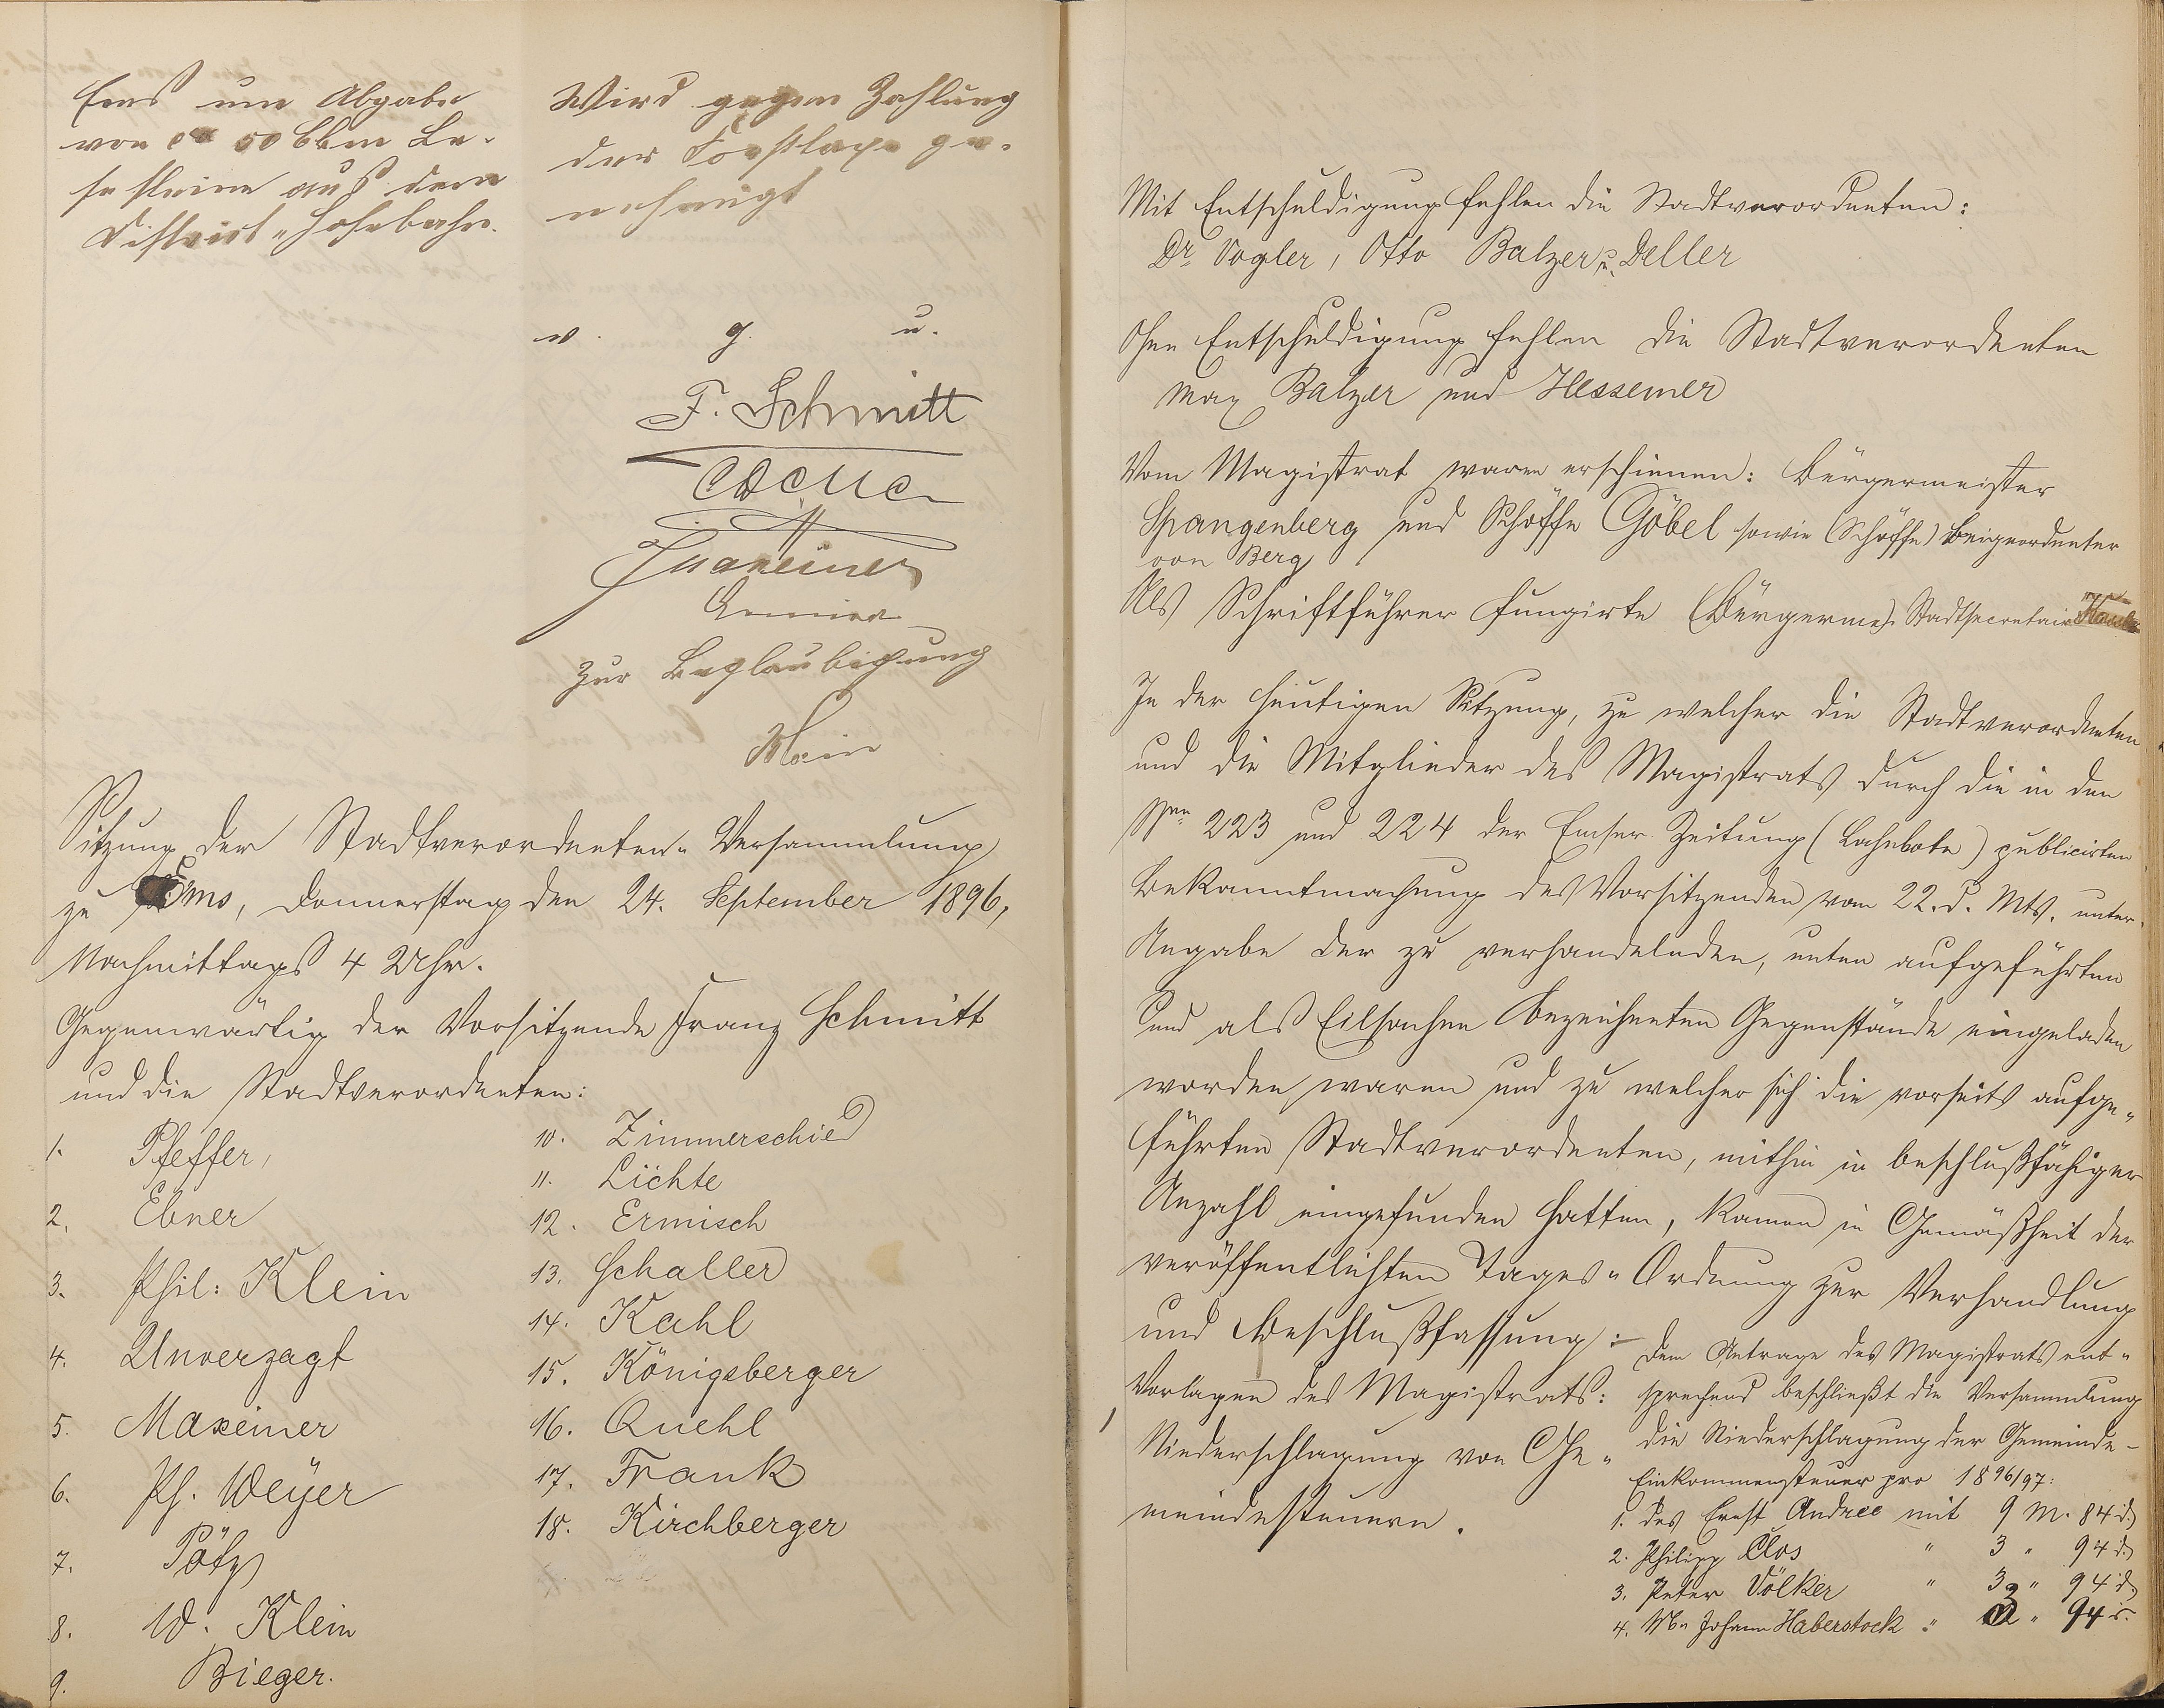 Ems um Abgabe
von ca 50 Cbkm Le-
sesteine aus dem
District „Hohebahn.
Wird gegen Zahlung
der Forsttaxe ge-
nehmigt
v. g. u.
F. Schmitt
Maxeiner
Zur Beglaubigung
Sitzung der Stadtverordneten-Versammlung
zu Ems, Donnerstag den 24. September 1896,
Nachmittags 4 Uhr.
Gegenwärtig der Vorsitzende Franz Schmitt
und die Stadtverordneten:
1. Pfeffer,
2. Ebner
3. Phil: Klein
4. Unverzagt
5. Maxeiner
6. Ph. Weyer
7. Pötz
8. W. Klein
9. Bieger.
10. Zimmerschied
11. Lichte
12. Ermisch
13. Schaller
14. Kahl
15. Königsberger
16. Quehl
17. Frank
18. Kirchberger
Mit Entschuldigung fehlen die Stadtverordneten:
Dr. Vogler, Otto Balzer u. Deller
Ohne Entschuldigung fehlen die Stadtverordneten
Max Balzer und Hessemer
Vom Magistrat waren erschienen: Bürgermeister
Spangenberg und Schöffe Göbel sowie (Schöffe) Beigeordneter
von Berg
Als Schriftführer fungirte (Bürgerm). Stadtsecretair
In der heutigen Sitzung, zu welcher die Stadtverordneten
und die Mitglieder des Magistrats durch die in den
Nrn 223 und 224 der Emser Zeitung (Lahnbote) publicirten
Bekanntmachung des Vorsitzenden vom 22. d. Mts. unter
Angabe der zu verhandelnden, unten aufgeführten
und als Eilsachen bezeichneten Gegenstände eingeladen
worden waren und zu welcher sich die vorseits aufge-
führten Stadtverordneten, mithin in beschlußfähiger
Anzahl eingefunden hatten, kamen in Gemäßheit der
veröffentlichten Tages-Ordnung zur Verhandlung
und Beschlußfassung:
Vorlagen des Magistrats:
1 Niederschlagung von Ge-
meindesteuern.
Dem Antrage des Magistrats ent-
sprechend beschließt die Versammlung
die Niederschlagung der Gemeinde-
Einkommensteuer pro 1896/97:
1. des Ernst Andree mit 9 M. 84 d.
2. Philipp Clos " 3 " 94 d.
3. Peter Völker " 3 " 94 d.
4. Johann Haberstock " 2 " 94 d.